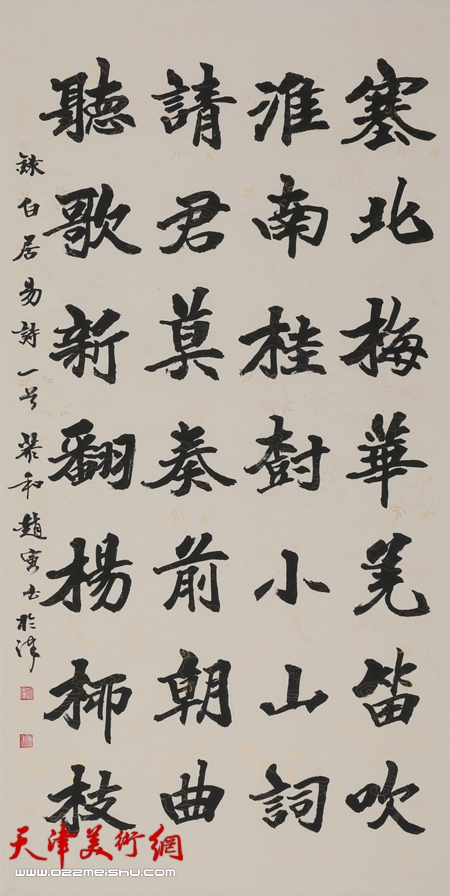 塞北梅華羌笛吹
淮南桂樹小山詞
請君莫奏前朝曲
聽歌新翻楊柳枝
錄白居易詩一首 慕和趙寅书於津
天津美術網
www.022meishu.com